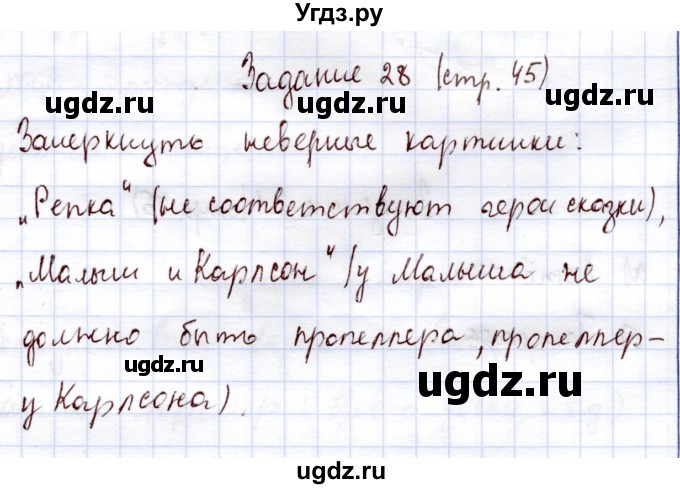 Угдз.ру
Задание 28 (стр. 45)
ugdz.ru ugdz.ru
Зачеркнуть неверные картинки:
ugdz.ru
„Репка“ (не соответствуют герои сказки),
„Малыш и Карлсон“ (у Малыша не
должно быть пропеллера, пропеллер-
ugdz.ru ugdz.ru
у Карлсона).
ugdz.ru